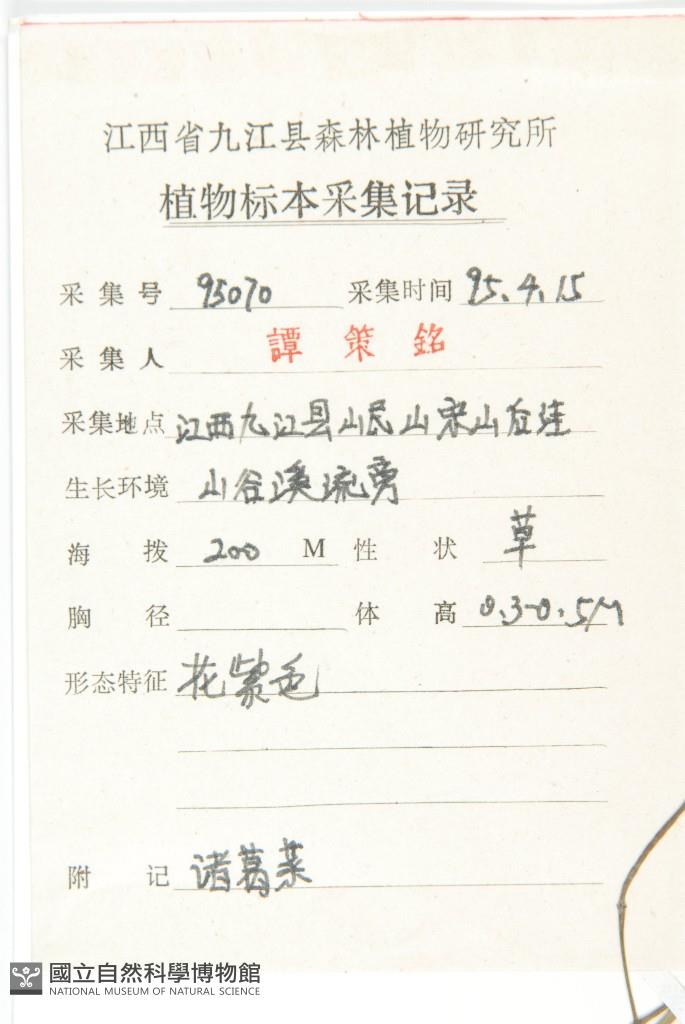 江西省九江县森林植物研究所
植物标本采集记录
采集号 95070 采集时间 95.4.15
采集人 譚策銘
采集地点 江西九江县山民山宋山后洼
生长环境 山谷溪流旁
海拨 200 M 性状 草
胸径 体高 0.3-0.5M
形态特征 花紫色
附记 诸葛菜
國立自然科學博物館
NATIONAL MUSEUM OF NATURAL SCIENCE